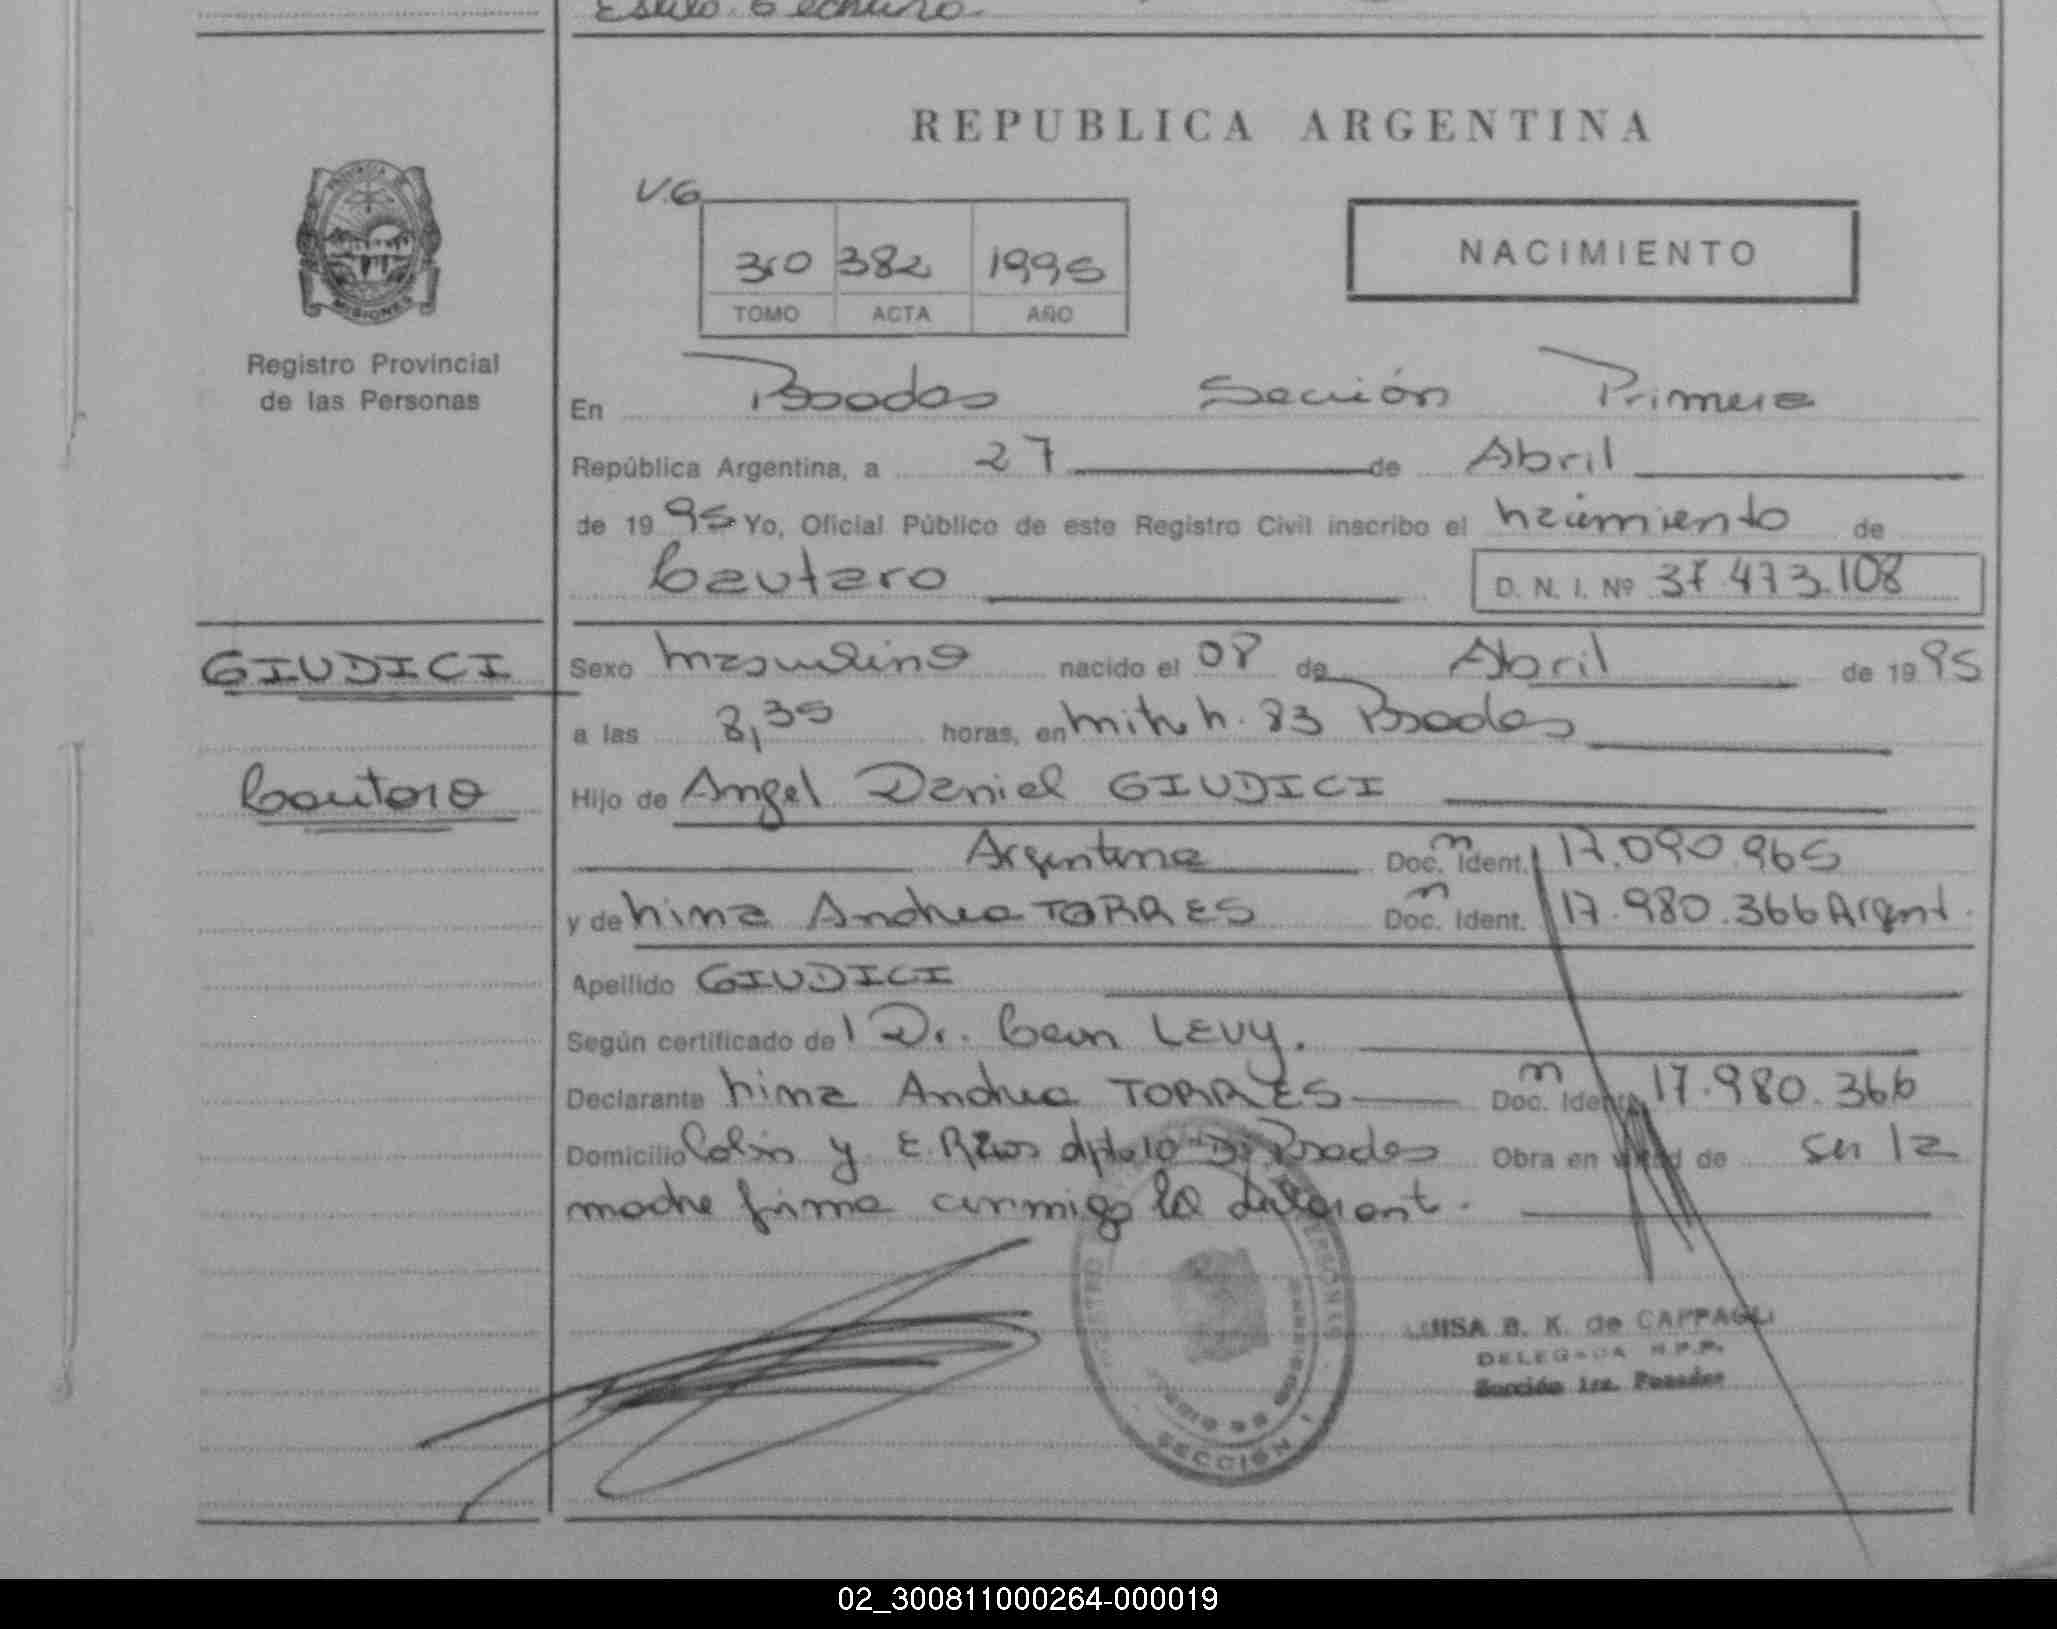 REPUBLICA ARGENTINA
V.6
310 382 1995
TOMO ACTA AÑO
NACIMIENTO
PROVINCIA DE
MISIONES
Registro Provincial
de las Personas
En Posadas Sección Primera
República Argentina, a 27 de Abril
de 19 95 Yo, Oficial Público de este Registro Civil inscribo el nacimiento de
Lautaro D. N. I. Nº 37.473.108
GIUDICI
Lautaro
Sexo masculino nacido el 08 de Abril de 19 95
a las 8,35 horas, en 83 Posadas
Hijo de Angel Daniel GIUDICI
Argentina Doc. Ident. 17.090.965
y de Andrea TORRES Doc. Ident. 17.980.366 Argent.
Apellido GIUDICI
Según certificado de l Dr. LEVY.
Declarante Andrea TORRES Doc. Ident. 17.980.366
Domicilio Colón y E. Ríos dpto 10 Posadas Obra en de su la
madre firma conmigo la
LUISA B. K. de CAPPAGLI
DELEGADA R.P.P.
Sección 1ra. Posadas
SECCIÓN 1
02_300811000264-000019